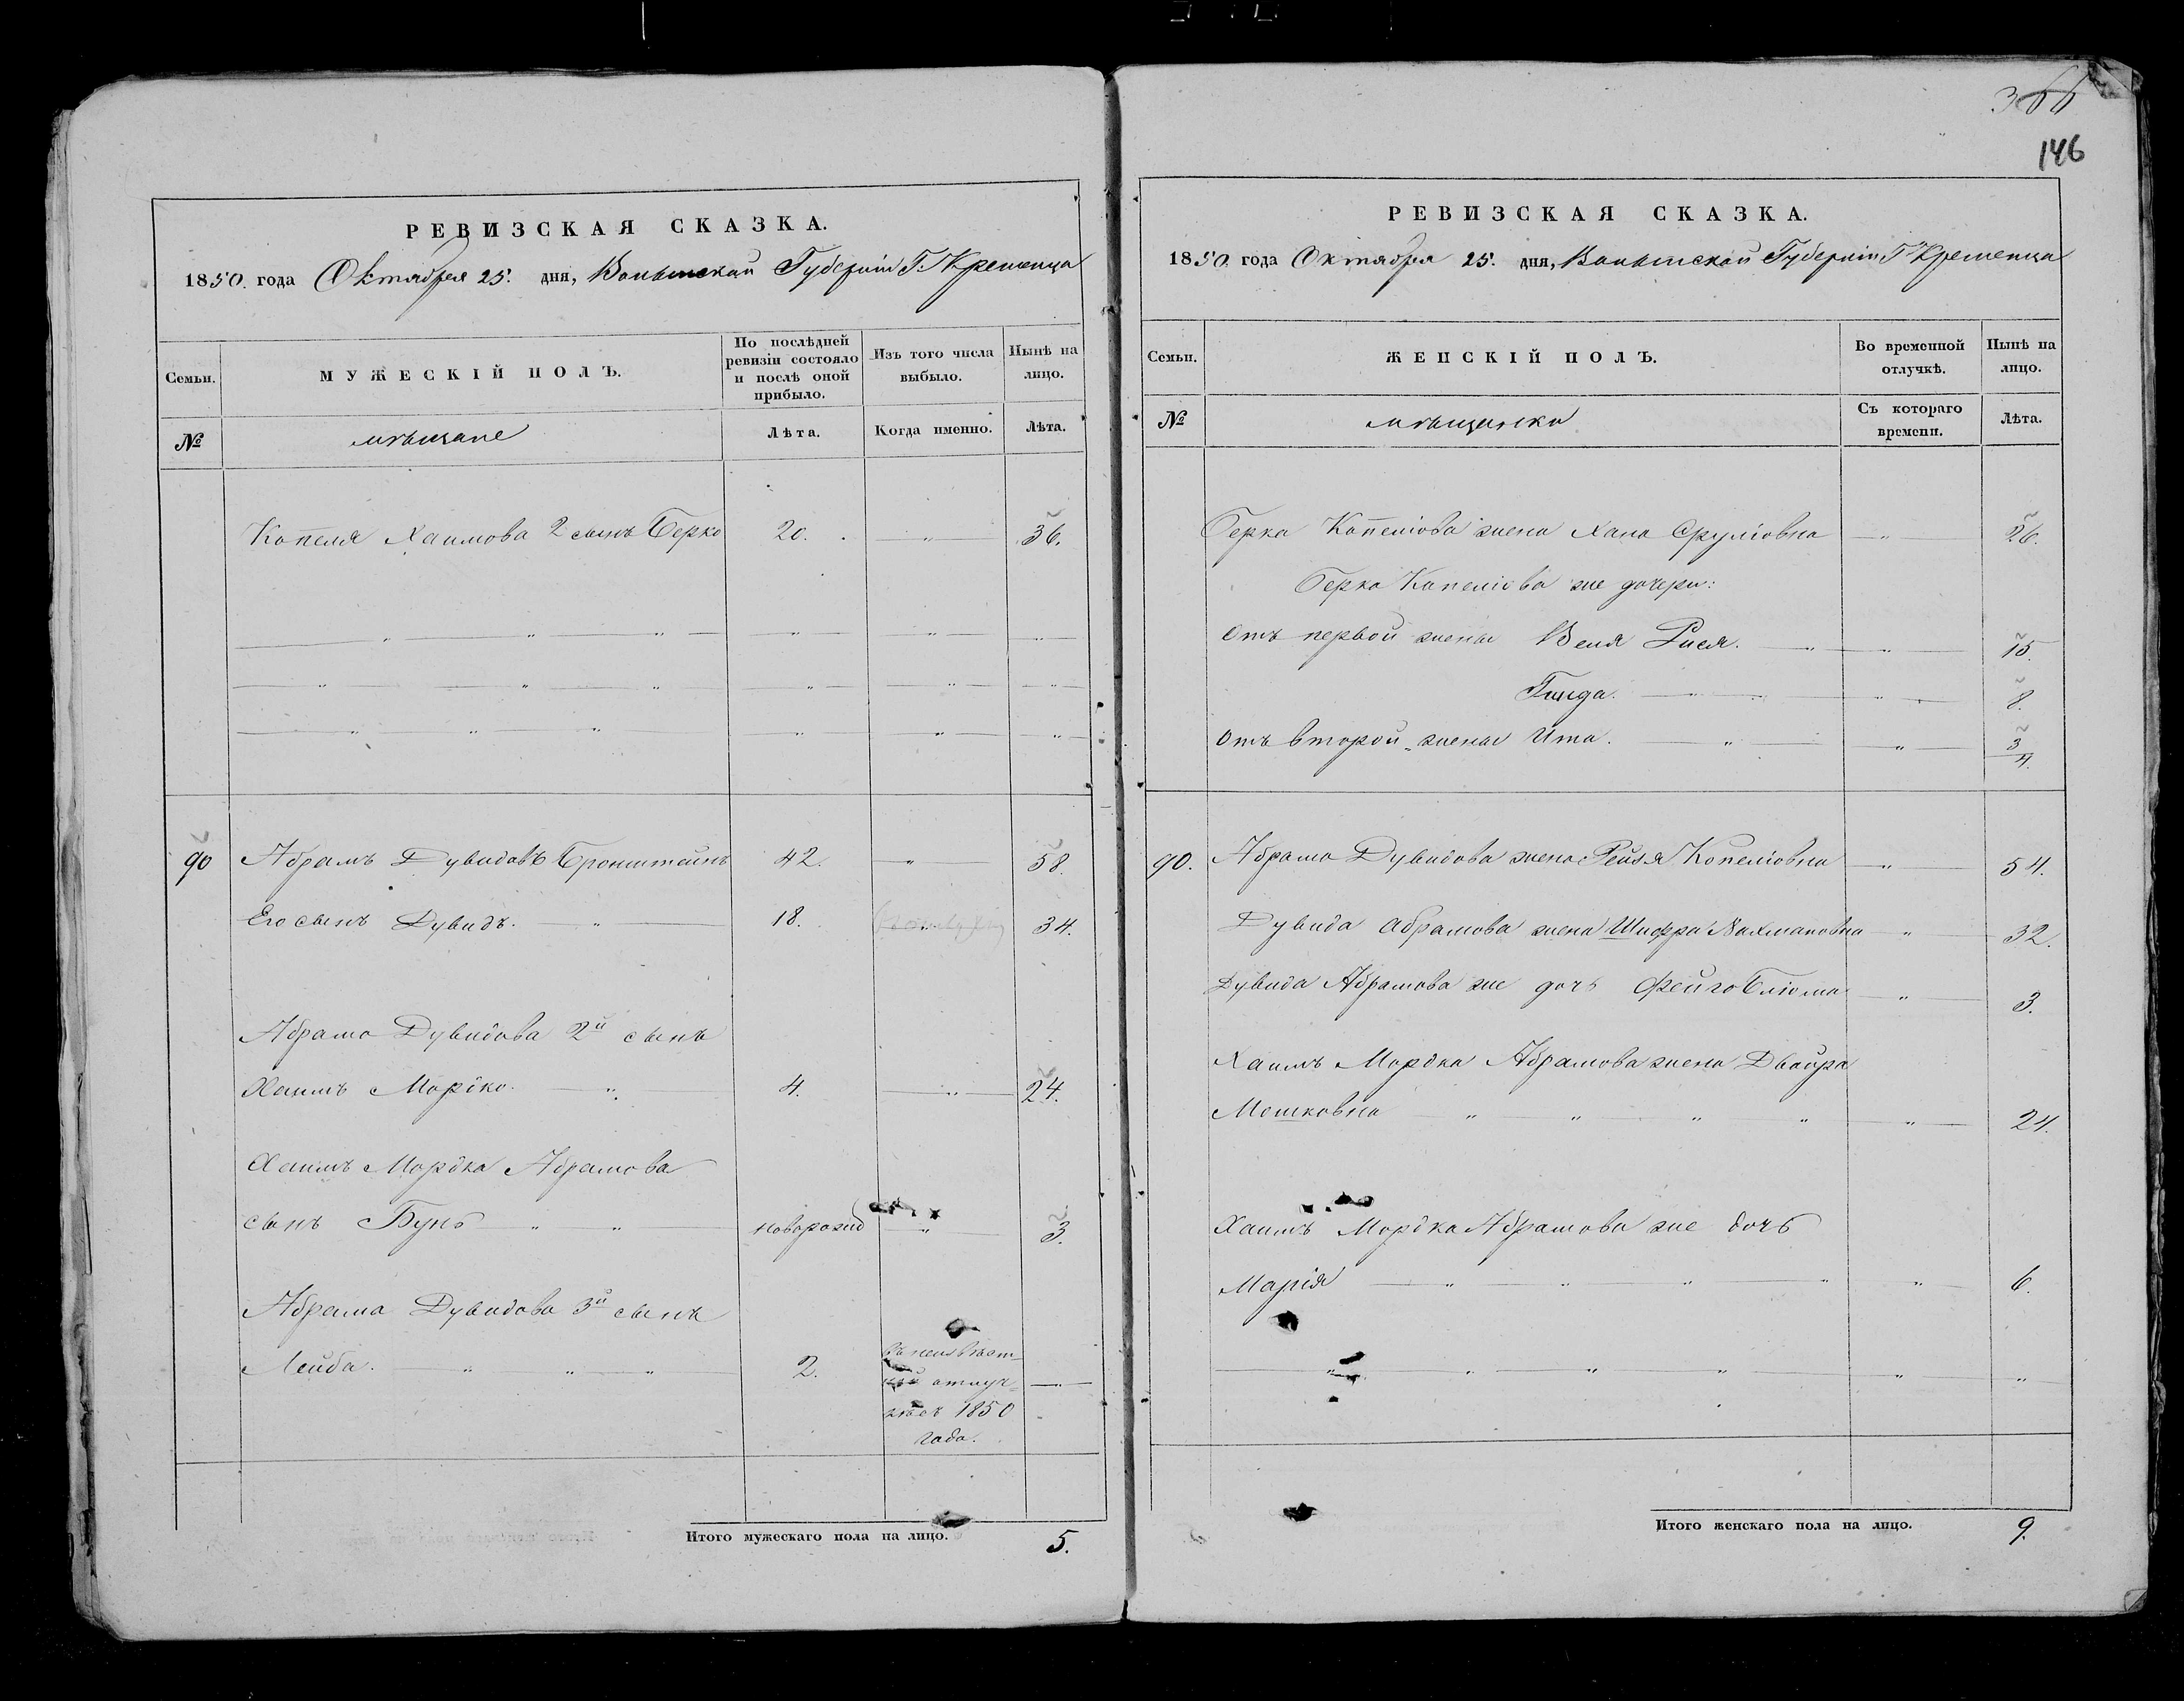 366
146
РЕВИЗСКАЯ СКАЗКА.
1850 года Октября 25. дня, Волынской Губерніи Г. Кременца
Семьи.
МУЖЕСКІЙ ПОЛЪ.
По послѣдней ревизіи состояло и послѣ оной прибыло.
Изъ того числа выбыло.
Нынѣ на лицо.
№
мѣщане
Лѣта.
Когда именно.
Лѣта.
Копеля Хаимова 2 сынъ Берко 20. " 36.
90 Абрамъ Дувидовъ Бронштейнъ 42. " 58.
Его сынъ Дувидъ. " 18. 34.
Абрама Дувидова 2й сынъ
Хаимъ Мордко. " 4. " 24.
Хаимъ Мордка Абрамова
сынъ Бунъ " " новорожд " 3.
Абрама Дувидова 3й сынъ
Лейба. " " " 2. въ неизвѣст-
ной отлуч-
кѣ съ 1850
года.
Итого мужескаго пола на лицо. 5.
РЕВИЗСКАЯ СКАЗКА.
1850 года Октября 25. дня, Волынской Губерніи Г Кременца
Семьи.
ЖЕНСКІЙ ПОЛЪ.
Во временной отлучкѣ.
Нынѣ на лицо.
№
мѣщанки
Съ котораго времени.
Лѣта.
Берка Копеліова жена Хана Сруліовна " 26.
Берка Копеліова же дочери:
Отъ первой жены Веля Рися. " " 15.
Гинда. " " 8.
Отъ второй жены Ита. " " 3/4.
90. Абрама Дувидова жена Рейзя Копеліовна " 54.
Дувида Абрамова жена Шифра Нахмановна " 32.
Дувида Абрамова же дочь Фейга Блюма " 3.
Хаимъ Мордка Абрамова жена Двойра
Мошковна " " " " " 24.
Хаимъ Мордка Абрамова же дочь
Марія " " " " " 6.
Итого женскаго пола на лицо. 9.